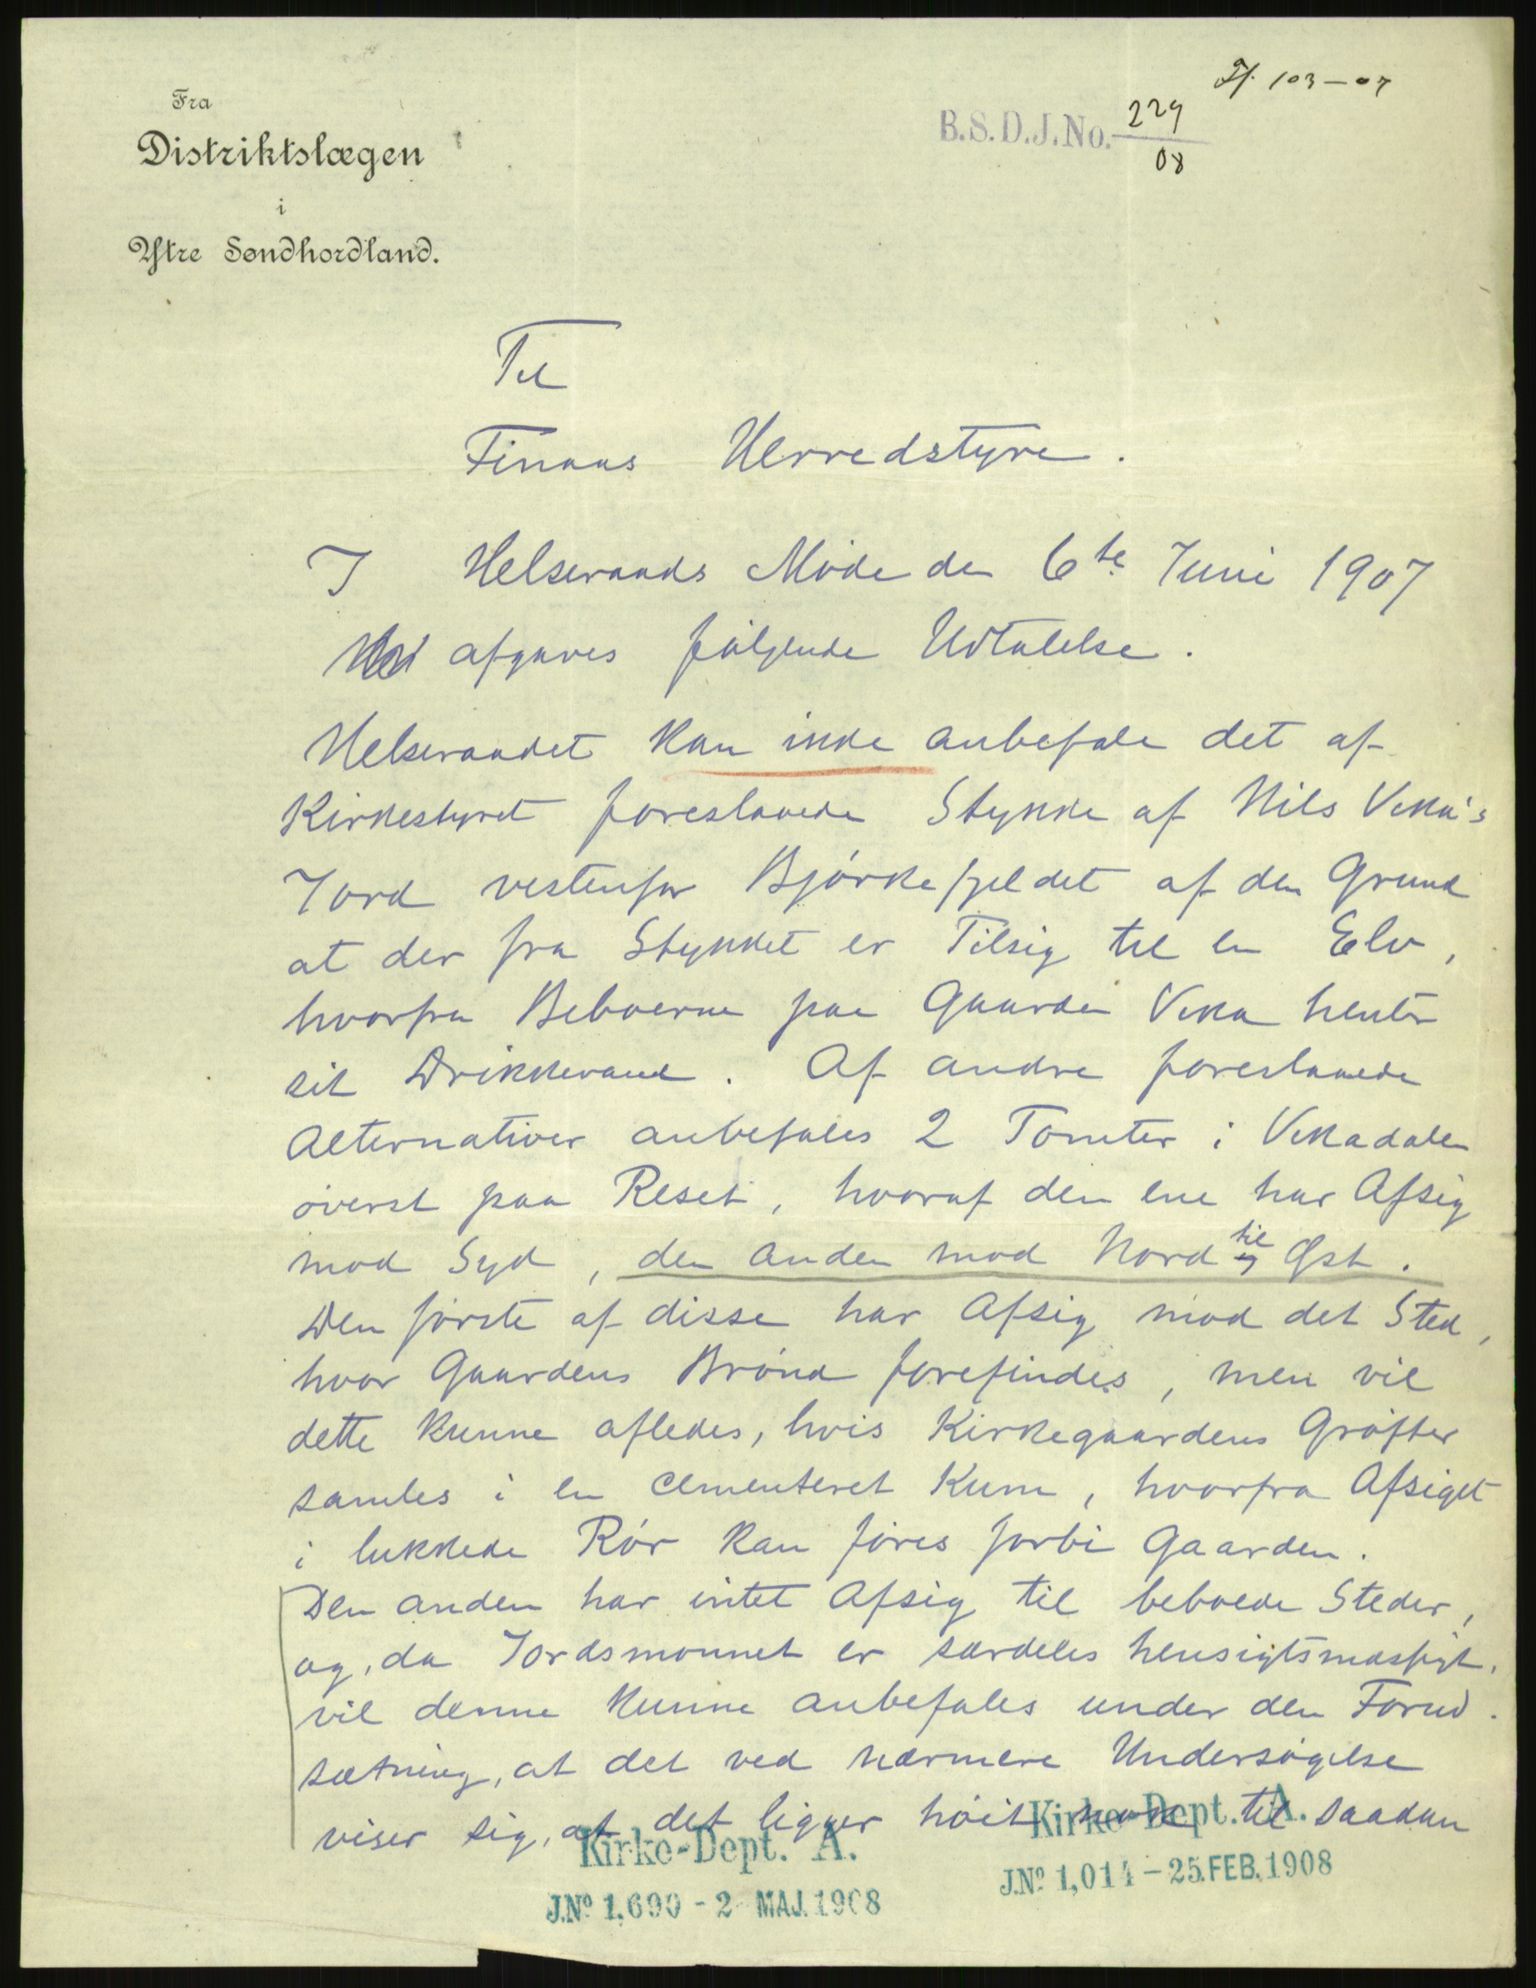 Fra
Distriktslægen
i
Ytre Søndhordland.
Jf. 103-07
B.S.D.J.No. 229
08
Til
Finnaas Herredstyre.
I Helseraads Møde den 6te Juni 1907
afgaves følgende Udtalelse.
Helseraadet kan ikke anbefale det af
Kirkestyret foreslaaede Stykke af Nils Vika's
Jord vestenfor Bjørkefjeldet af den Grund
at der fra Stykket er Tilsig til en Elv,
hvorfra Beboerne paa Gaarden Vika henter
sit Drikkevand. Af andre foreslaaede
Alternativer anbefales 2 Tomter i Vikadalen
øverst paa Reset, hvoraf den ene har Afsig
mod Syd, den anden mod Nord til Øst.
Den første af disse har Afsig mod det Sted,
hvor Gaardens Brønd forefindes, men vil
dette kunne afledes, hvis Kirkegaardens Grøfter
samles i en cementeret Kum, hvorfra Afsiget
i lukkede Rør kan føres forbi Gaarden.
Den anden har intet Afsig til beboede Steder,
og, da Jordsmonnet er særdeles hensigtsmæssigt,
vil denne kunne anbefales under den Forud-
sætning, at det ved nærmere Undersøgelse
viser sig, at det ligger høit nok til saadan
Kirke-Dept. A.
J.No 1,014 - 25.FEB.1908
Kirke-Dept. A.
J.No 1,690 - 2 MAJ.1908